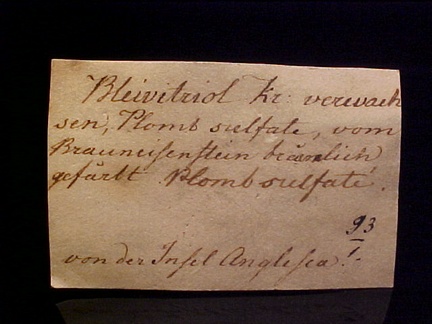 Bleivitriol kr: verwach
sen, Plomb sulfate, vom
Brauneisenstein bräunlich
gefärbt. Plomb sulfaté.
93
1.
von der Insel Anglesea.